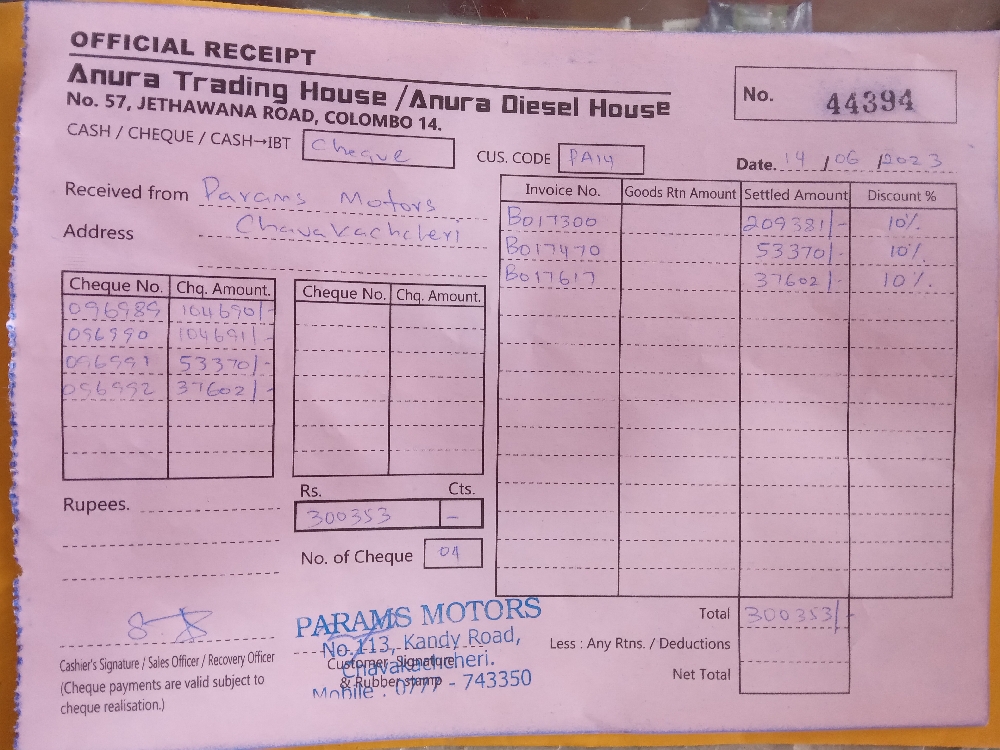 OFFICIAL RECEIPT
Anura Trading House / Anura Diesel House
No. 57, JETHAWANA ROAD, COLOMBO 14.
No. 44394
CASH / CHEQUE / CASH→IBT Cheque
CUS. CODE PA14
Date. 14 / 06 / 2023
Received from Params Motors
Address Chavakachcheri
Invoice No. Goods Rtn Amount Settled Amount Discount %
B017300 209381/- 10%
B017470 53370/- 10%
B017617 37602/- 10%
Cheque No. Chq. Amount. Cheque No. Chq. Amount.
096989 104690/-
096990 104691/-
096991 53370/-
096992 37602/-
Rupees.
Rs. Cts.
300353 -
No. of Cheque 04
Total 300353/-
Less : Any Rtns. / Deductions
Net Total
Cashier's Signature / Sales Officer / Recovery Officer
(Cheque payments are valid subject to
cheque realisation.)
Customer Signature
& Rubber stamp
PARAMS MOTORS
No.113, Kandy Road,
Chavakachcheri.
Mobile : 0777 - 743350